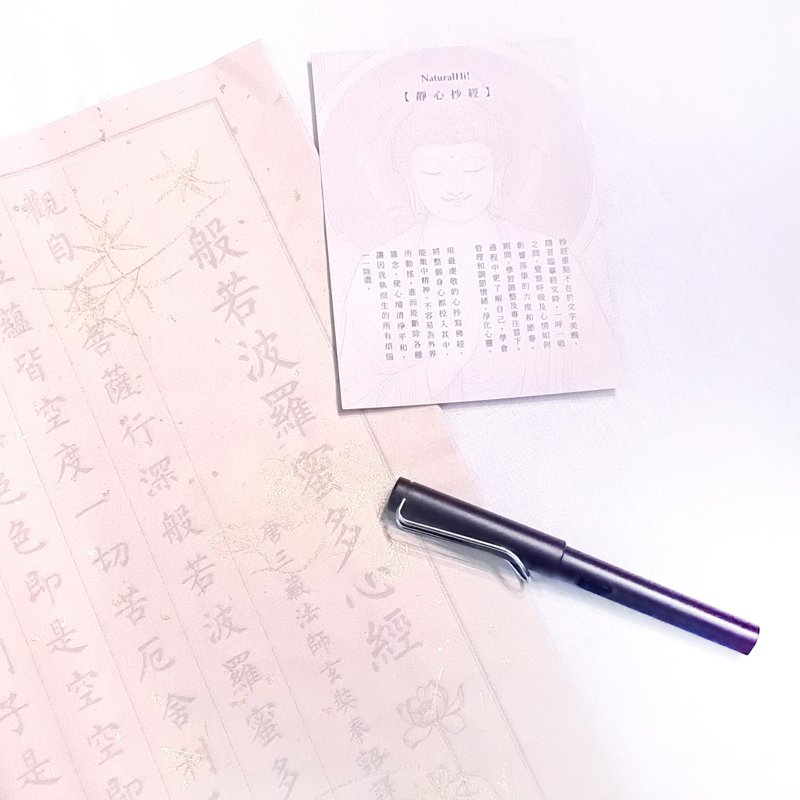 NaturalHi!
【靜心抄經】
抄經重點不在於文字美醜，
隨著臨摹經文時，一呼一吸
之間，覺察呼吸及心情如何
影響落筆的力度和節奏，
期間，學習調整及專注當下。
過程中更了解自己，學會
管理和調節情緒，淨化心靈。
用最虔敬的心抄寫佛經，
將整個身心都投入其中，
能集中精神，不容易為外界
所動搖，進而能斷除各種
雜念，使心境清淨平和，
讓因我執而生的所有煩惱
一一除盡。
般若波羅蜜多心經
唐三藏法師玄奘奉詔譯
觀自在菩薩行深般若波羅蜜多
蘊皆空度一切苦厄舍
色色即是空空即
子是